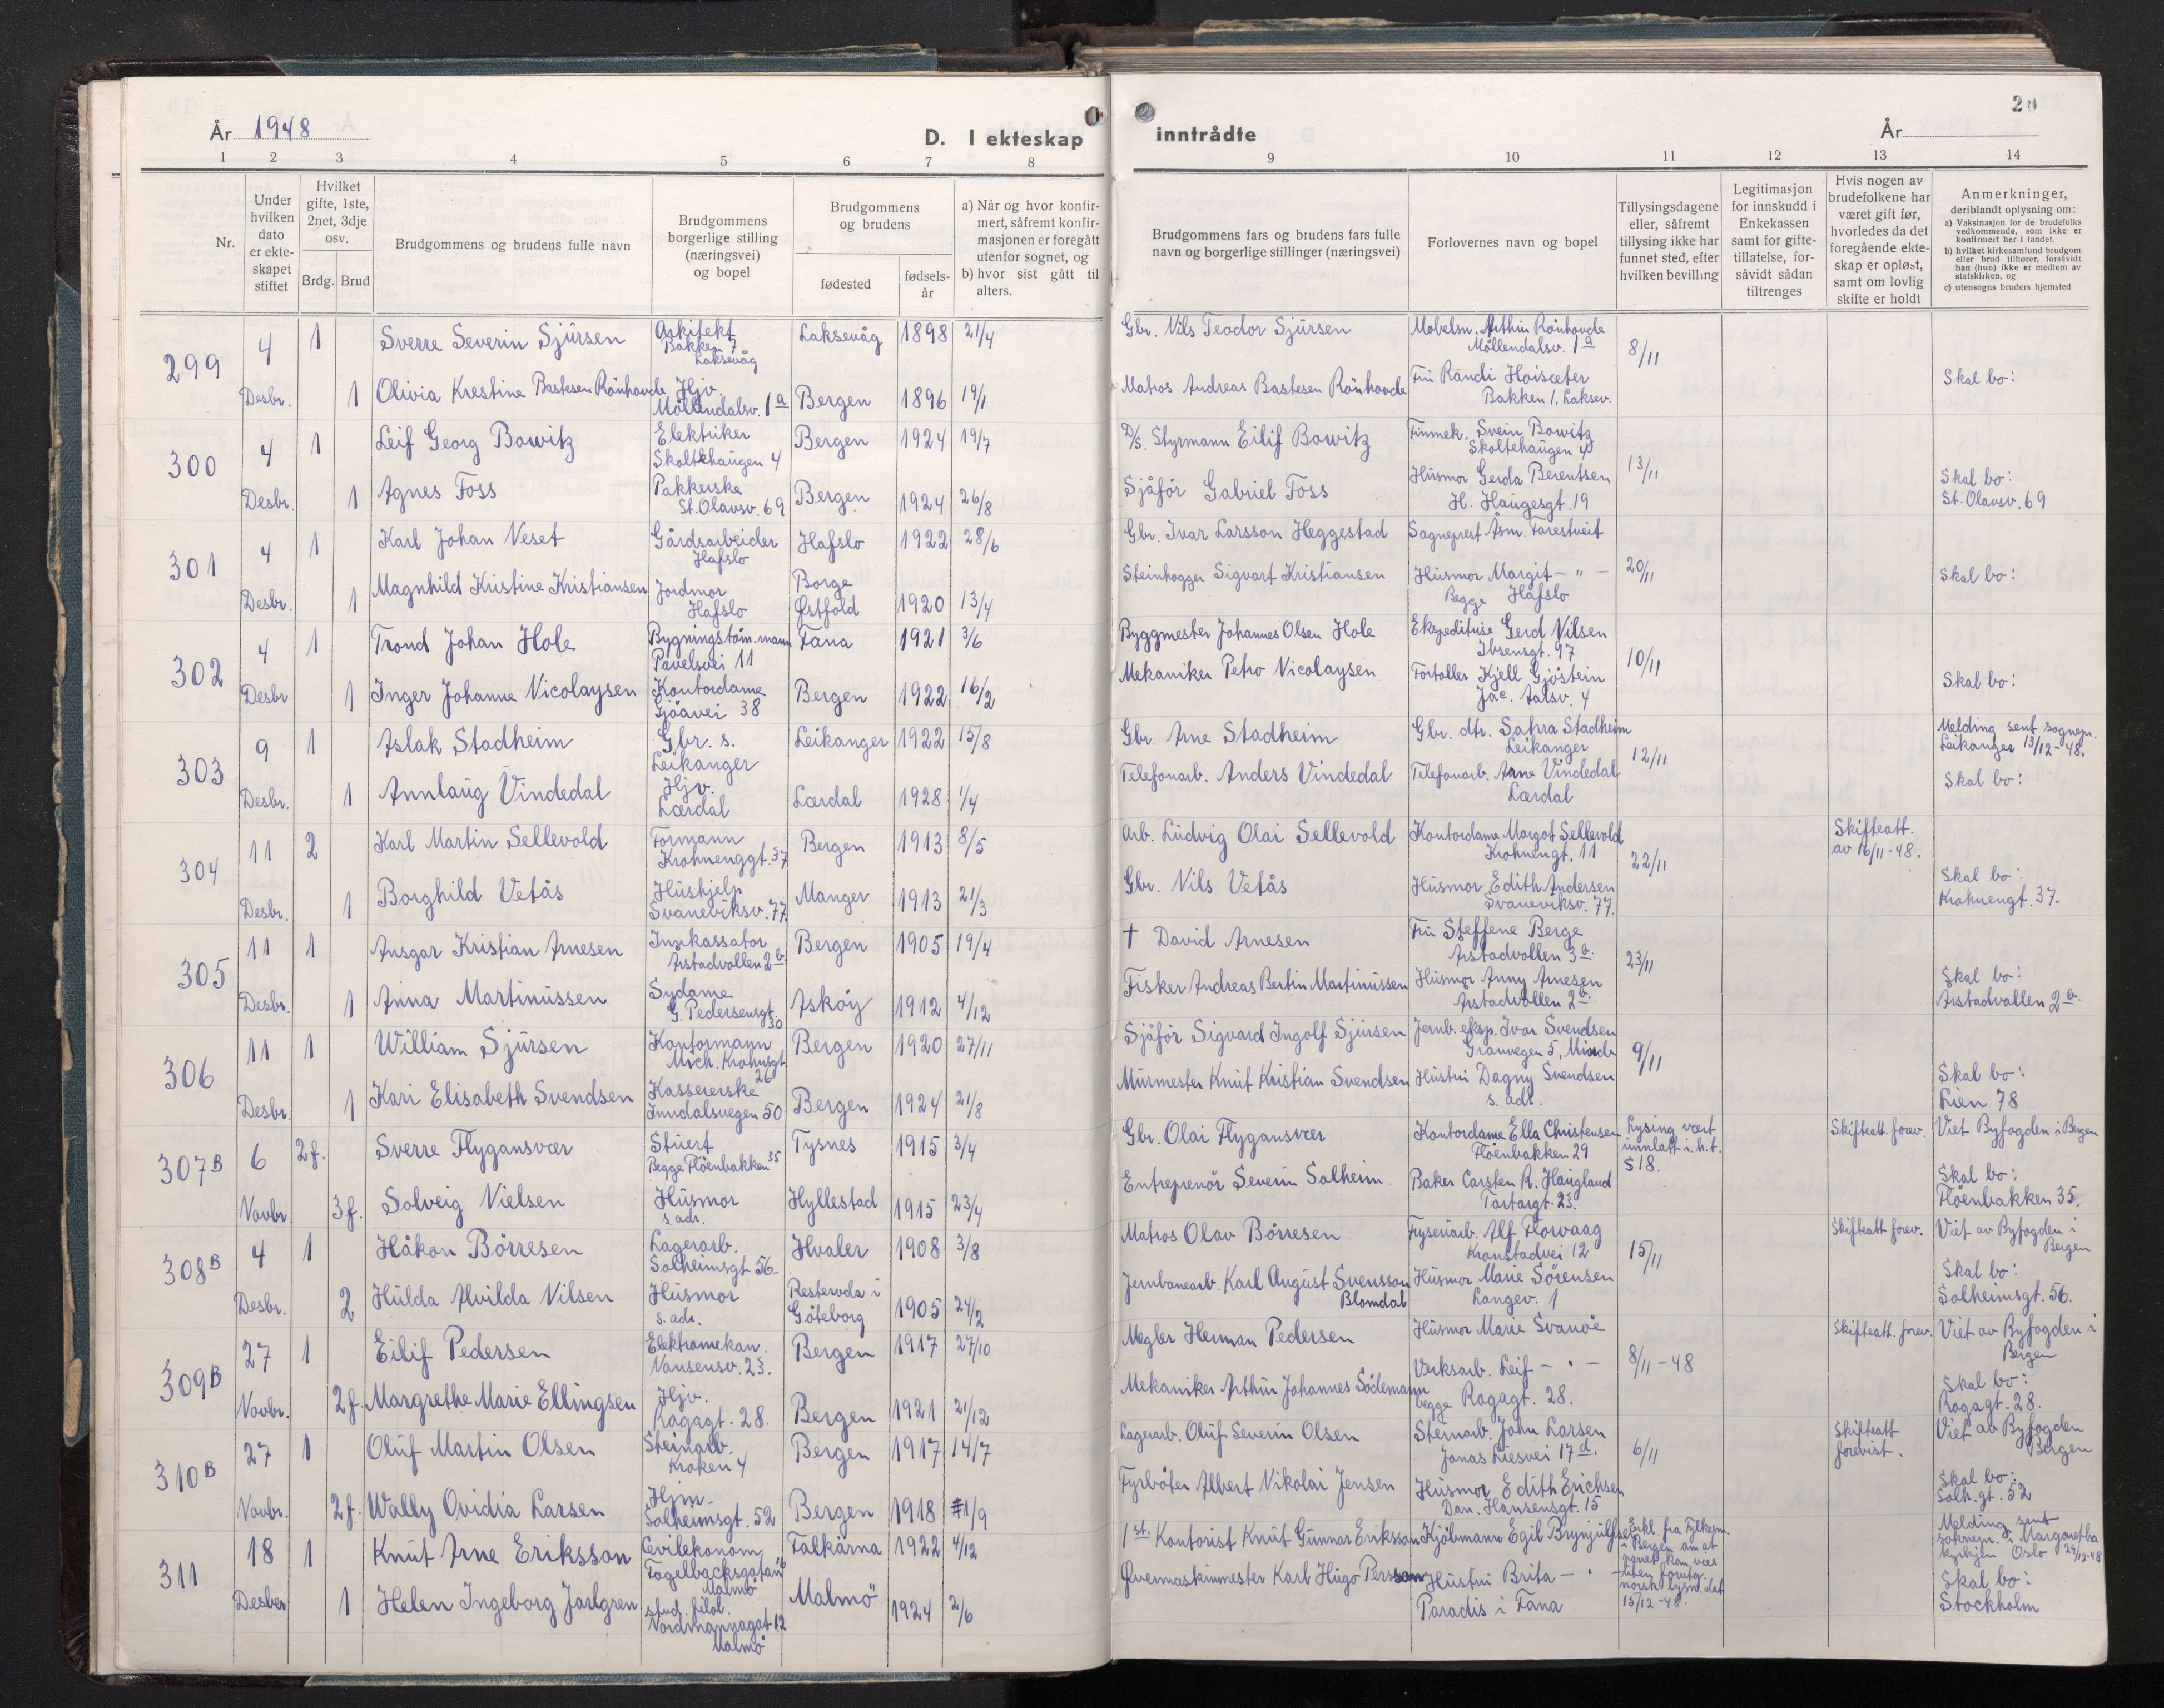 År 1948
D. I ekteskap
inntrådte
År
1 2 3 4 5 6 7 8
9 10 11 12 13 14
Nr.
Under hvilken dato er ekteskapet stiftet
Hvilket gifte, 1ste, 2net, 3dje osv.
Brdg. Brud
Brudgommens og brudens fulle navn
Brudgommens borgerlige stilling (næringsvei) og bopel
Brudgommens og brudens
fødested
fødselsår
a) Når og hvor konfirmert, såfremt konfirmasjonen er foregått utenfor sognet, og
b) hvor sist gått til alters.
Brudgommens fars og brudens fars fulle navn og borgerlige stillinger (næringsvei)
Forlovernes navn og bopel
Tillysingsdagene eller, såfremt tillysing ikke har funnet sted, efter hvilken bevilling
Legitimasjon for innskudd i Enkekassen samt for giftetillatelse, forsåvidt sådan tiltrenges
Hvis nogen av brudefolkene har været gift før, hvorledes da det foregående ekteskap er opløst, samt om lovlig skifte er holdt
Anmerkninger, deriblandt oplysning om:
a) Vaksinasjon for de brudefolks vedkommende, som ikke er konfirmert her i landet.
b) hvilket kirkesamfund brudgom eller brud tilhører, forsåvidt han (hun) ikke er medlem av statskirken, og
c) utensogns bruders hjemsted
299 4 Desbr.
1 Sverre Severin Sjursen Arkitekt Bakken 7 Laksevåg Laksevåg 1898 21/4 Gbr. Nils Teodor Sjursen
Møllendalsv. 1a 8/11
1 Olivia Krestine Bastesen Rønhovde Hjv. Møllendalsv. 1a Bergen 1896 19/1 Matros Andreas Bastesen Rønhovde Fru Randi Hoisæter Bakken 1, Laksev. Skal bo:
300 4 Desbr.
1 Leif Georg Bowitz Elektriker Skoltehaugen 4 Bergen 1924 19/7 D/S. Styrmann Eilif Bowitz Finmek. Svein Bowitz Skoltehaugen 4 13/11
1 Agnes Foss Pakkerske St. Olavsv. 69 Bergen 1924 26/8 Sjåfør Gabriel Foss Husmor Gerda Berentsen H. Haugesgt. 19 Skal bo: St. Olavsv. 69
301 4 Desbr.
1 Karl Johan Neset Gårdsarbeider Hafslo Hafslo 1922 28/6 Gbr. Ivar Larsson Heggestad Sogneprest Åsm. Farestveit 20/11
1 Magnhild Kristine Kristiansen Jordmor Hafslo Borge Østfold 1920 13/4 Steinhogger Sigvart Kristiansen Husmor Margit - " - Begge Hafslo Skal bo:
302 4 Desbr
1 Trond Johan Hole Bygningstøm.mann Pavelsvei 11 Fana 1921 3/6 Byggmester Johannes Olsen Hole Ekspeditrise Gerd Nilsen Ibsensgt. 97 10/11
1 Inger Johanne Nicolaysen Kontordame Gjøavei 38 Bergen 1922 16/2 Mekaniker Petro Nicolaysen Fortoller Kjell Gjøstein Jac. Aalsv. 4 Skal bo:
303 9 Desbr.
1 Aslak Stadheim Gbr. s. Leikanger Leikanger 1922 15/8 Gbr. Arne Stadheim Gbr. dtr. Leikanger 12/11 Melding sent sognepr. Leikanger 13/12-48.
1 Annlaug Vindedal Hjv. Lærdal Lærdal 1928 1/4 Telefonarb. Anders Vindedal Telefonarb. Arne Vindedal Lærdal Skal bo:
304 11 Desbr.
2 Karl Martin Sellevold Formann Krohnenggt. 37 Bergen 1913 8/5 Arb. Ludvig Olai Sellevold Kontordame Margot Sellevold Krohnengt. 11 22/11 Skifteatt. av 16/11-48.
1 Borghild Vetås Hushjelp Svaneviksv. 77 Manger 1913 21/3 Gbr. Nils Vetås Husmor Edith Andersen Svaneviksv. 77. Skal bo: Krohnengt. 37.
305 11 Desbr.
1 Ansgar Kristian Arnesen Innkassator Årstadvollen 2b. Bergen 1905 19/4 † David Arnesen Fru Steffene Berge Årstadvollen 3b. 23/11
1 Anna Martinussen Sydame G. Pedersensgt. 30 Askøy 1912 4/12 Fisker Andreas Bertin Martinussen Husmor Anny Arnesen Årstadvollen 2b. Skal bo: Årstadvollen 2b.
306 11 Desbr.
1 William Sjursen Kontormann Mich. Krohnsgt. 26 Bergen 1920 27/11 Sjåfør Sigvard Ingolf Sjursen Jernb. eksp. Ivar Svendsen Granvegen 5, Minde 9/11
1 Kari Elisabeth Svendsen Kassererske Inndalsvegen 50 Bergen 1924 21/8 Murmester Knut Kristian Svendsen Hustru Dagny Svendsen s. adr. Skal bo: Lien 78
307B 6 Novbr.
2f. Sverre Flygansvær Stuert Begge Fløenbakken 35 Tysnes 1915 3/4 Gbr. Olai Flygansvær Kontordame Ella Christensen Fløenbakken 29 Lysing vert unnlatt i.h.t. § 18. Skifteatt. forev. Viet Byfogden i Bergen
3f. Solveig Nielsen Husmor s. adr. Hyllestad 1915 23/4 Entreprenør Severin Solheim Baker Carsten R. Haugland Tartargt. 23. Skal bo: Fløenbakken 35.
308B 4 Desbr.
1 Håkon Børresen Lagerarb. Solheimsgt. 56 Hvaler 1908 3/8 Matros Olav Børresen Fryseriarb. Alf Florvaag Kronstadvei 12 15/11 Skifteatt. forev. Viet av Byfogden i Bergen
2 Hulda Alvilda Nilsen Husmor s. adr. Resterøda i Göteborg 1905 24/2 Jernbanearb. Karl August Svensson Blomdal Husmor Marie Sørensen Langev. 1 Skal bo: Solheimsgt. 56.
309B 27 Novbr.
1 Eilif Pedersen Elektromekan. Nansensv. 23. Bergen 1917 27/10 Megler Herman Pedersen Husmor Marie Svanøe 8/11-48 Skifteatt. forev. Viet av Byfogden i Bergen
2f. Margrethe Marie Ellingsen Hjv. Ragagt. 28. Bergen 1921 21/12 Mekaniker Arthur Johannes Södemann Verksarb. Leif - " - begge Ragagt. 28. Skal bo: Ragagt. 28.
310B 27 Novbr.
1 Oluf Martin Olsen Steinarb. Kroken 4 Bergen 1917 14/7 Lagerarb. Oluf Severin Olsen John Larsen Jonas Liesvei 17d. 6/11 Skifteatt forevist. Viet av Byfogden Bergen
2f. Wally Ovidia Larsen Hjm. Solheimsgt. 52 Bergen 1918 1/9 Fyrbøter Albert Nikolai Jensen Husmor Edith Erichsen Dan. Hansensgt. 15 Skal bo: Solh.gt. 52
311 18 Desber
1 Knut Arne Eriksson Civilekonom Malmö Falkärna 1922 4/12 1st. Kontorist Knut Gunnar Eriksson Kjøbmann Egil Brynjulfsen Erkl. fra Fylkesm. i Bergen om at 13/12-48. Melding sent soknepr. i Margaretha kyrkjen Oslo 29/12-48
1 Helen Ingeborg Jarlgren stud. filol. Malmö Malmö 1924 2/6 Øvermaskinmester Karl Hugo Persson Hustru Brita - " - Paradis i Fana Skal bo: Stockholm